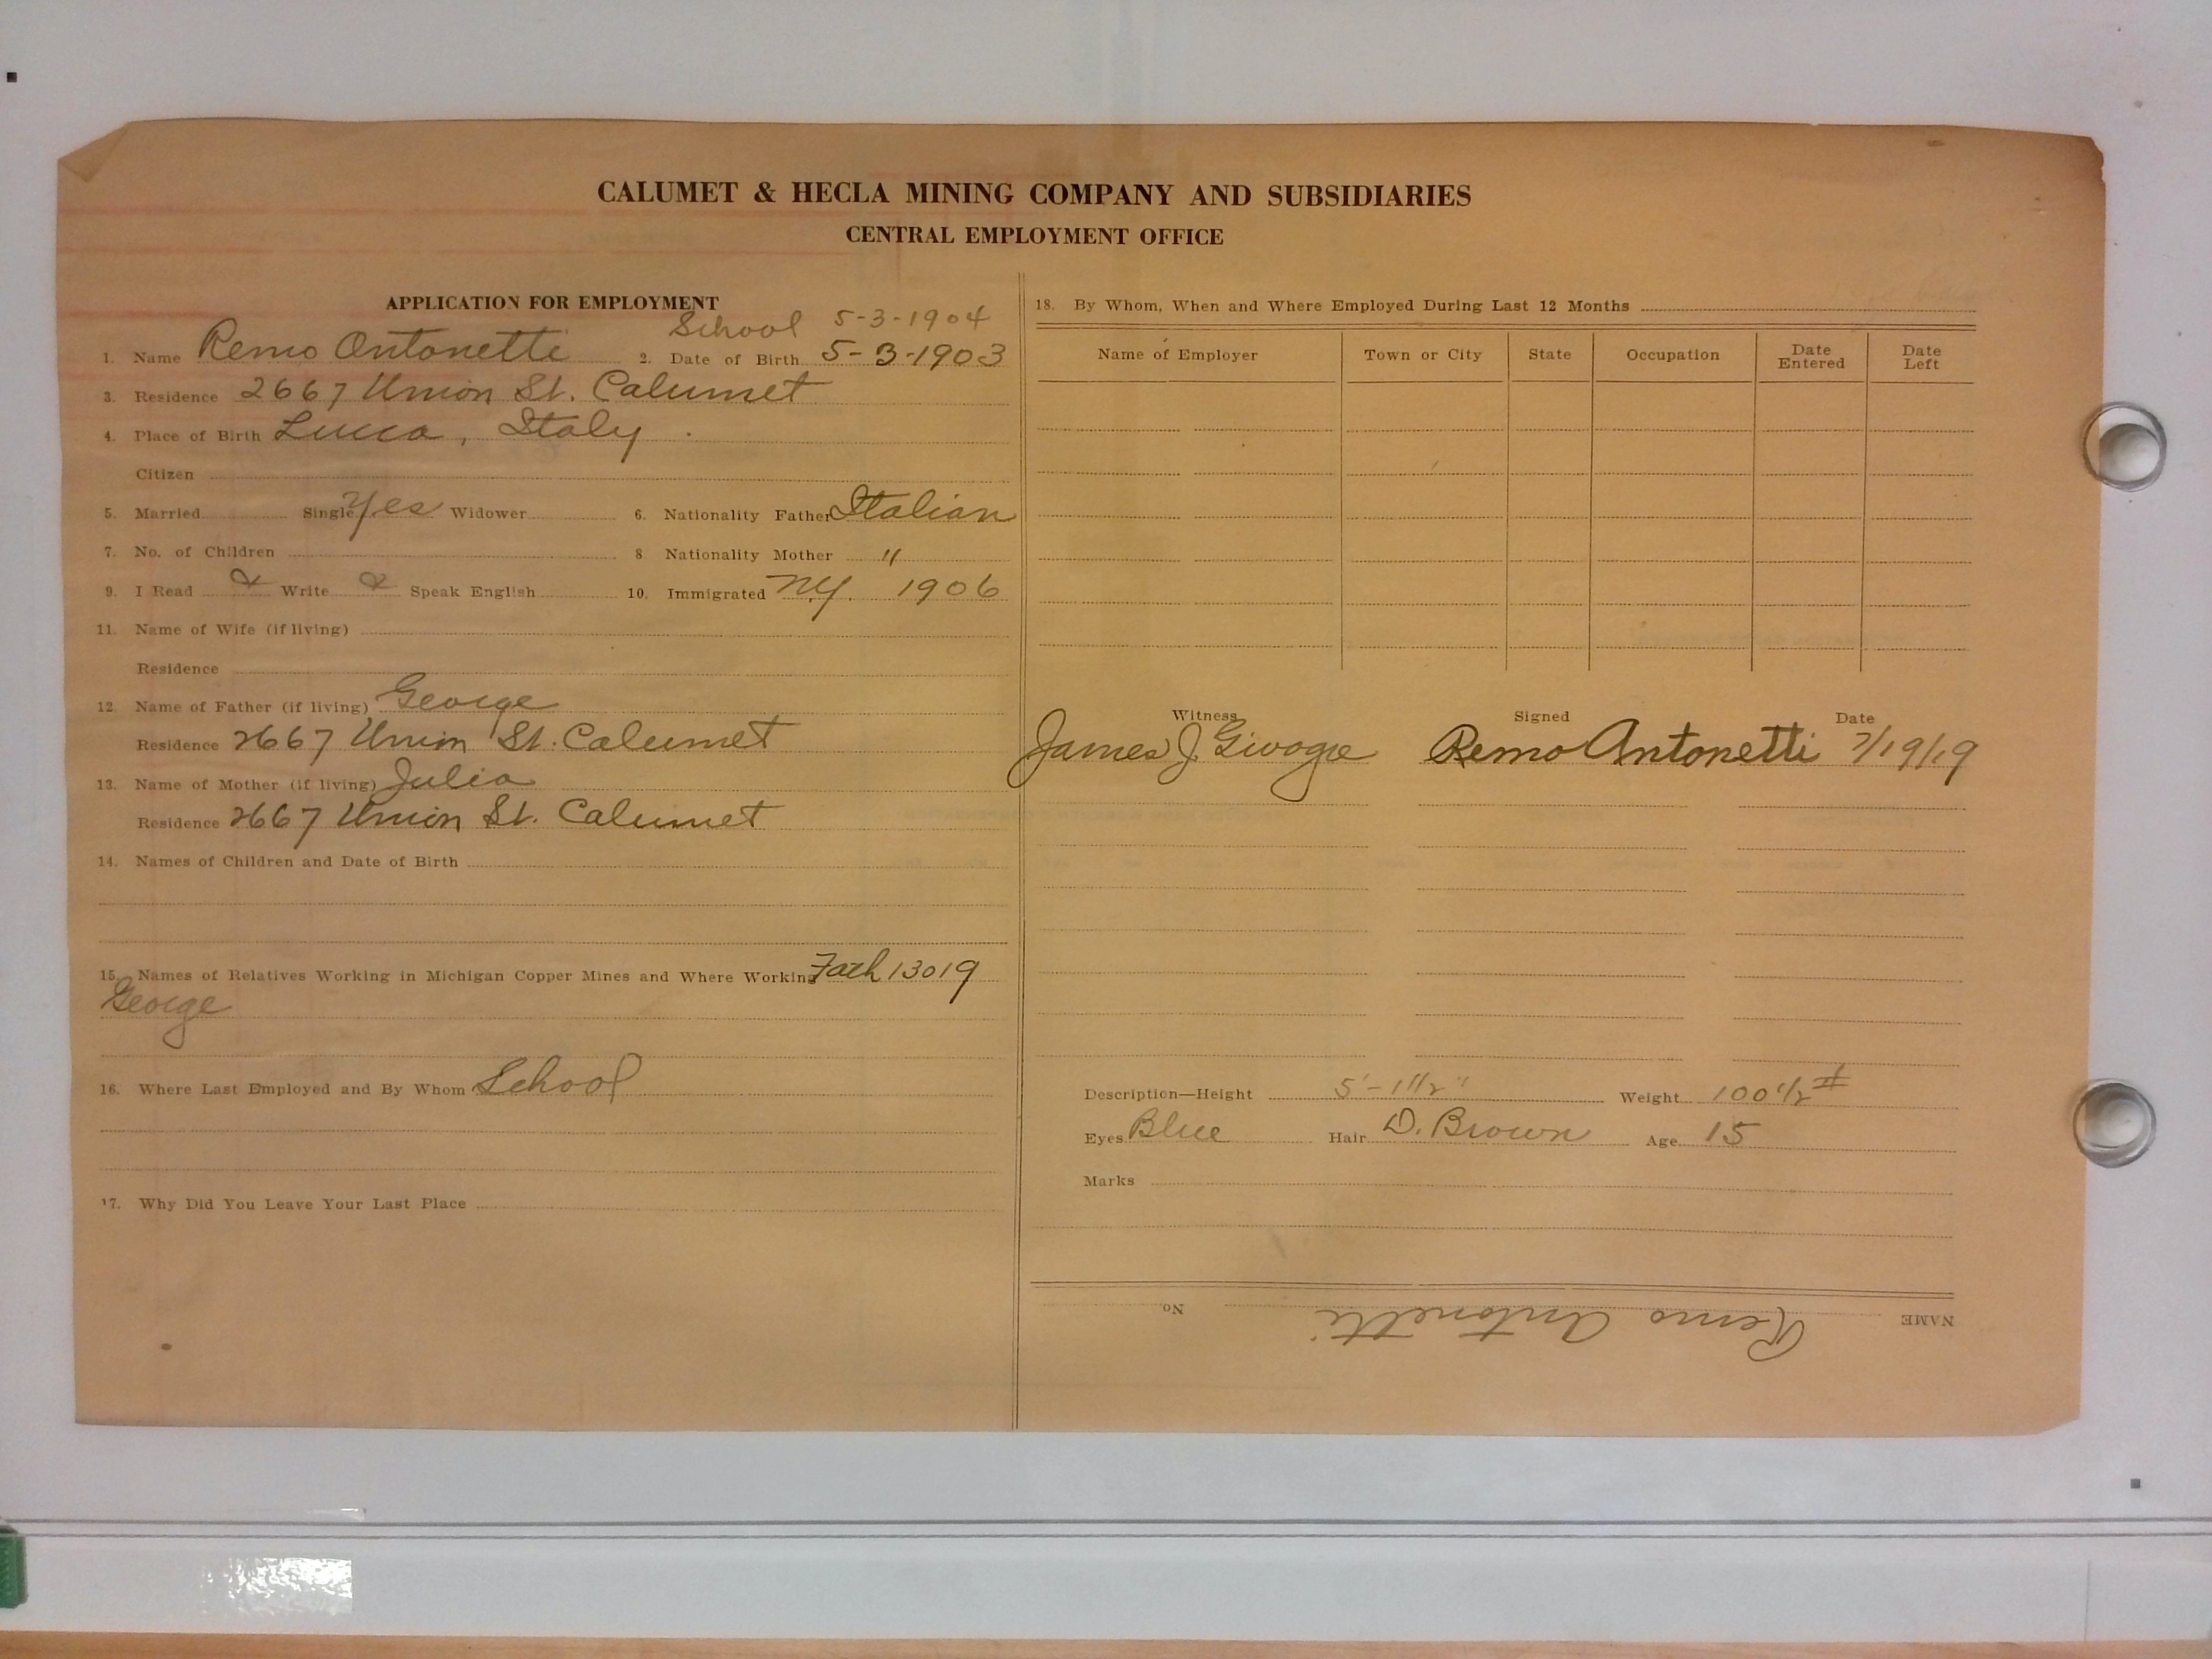 CALUMET & HECLA MINING COMPANY AND SUBSIDIARIES
CENTRAL EMPLOYMENT OFFICE
APPLICATION FOR EMPLOYMENT
School 5-3-1904
1. Name Remo Antonetti 2. Date of Birth 5-3-1903
3. Residence 2667 Union St. Calumet
4. Place of Birth Lucca, Italy.
Citizen
5. Married Single Yes Widower 6. Nationality Father Italian
7. No. of Children 8. Nationality Mother "
9. I Read & Write & Speak English 10. Immigrated N.Y. 1906
11. Name of Wife (if living)
Residence
12. Name of Father (if living) George
Residence 2667 Union St. Calumet
13. Name of Mother (if living) Julia
Residence 2667 Union St. Calumet
14. Names of Children and Date of Birth
15. Names of Relatives Working in Michigan Copper Mines and Where Working Fath 13019
George
16. Where Last Employed and By Whom School
17. Why Did You Leave Your Last Place
18. By Whom, When and Where Employed During Last 12 Months
Name of Employer Town or City State Occupation Date Entered Date Left
Witness Signed Date
James J. Remo Antonetti 7/19/19
Description—Height 5'-1 1/2" Weight 100 1/2 #
Eyes Blue Hair D. Brown Age 15
Marks
NAME Remo Antonetti No